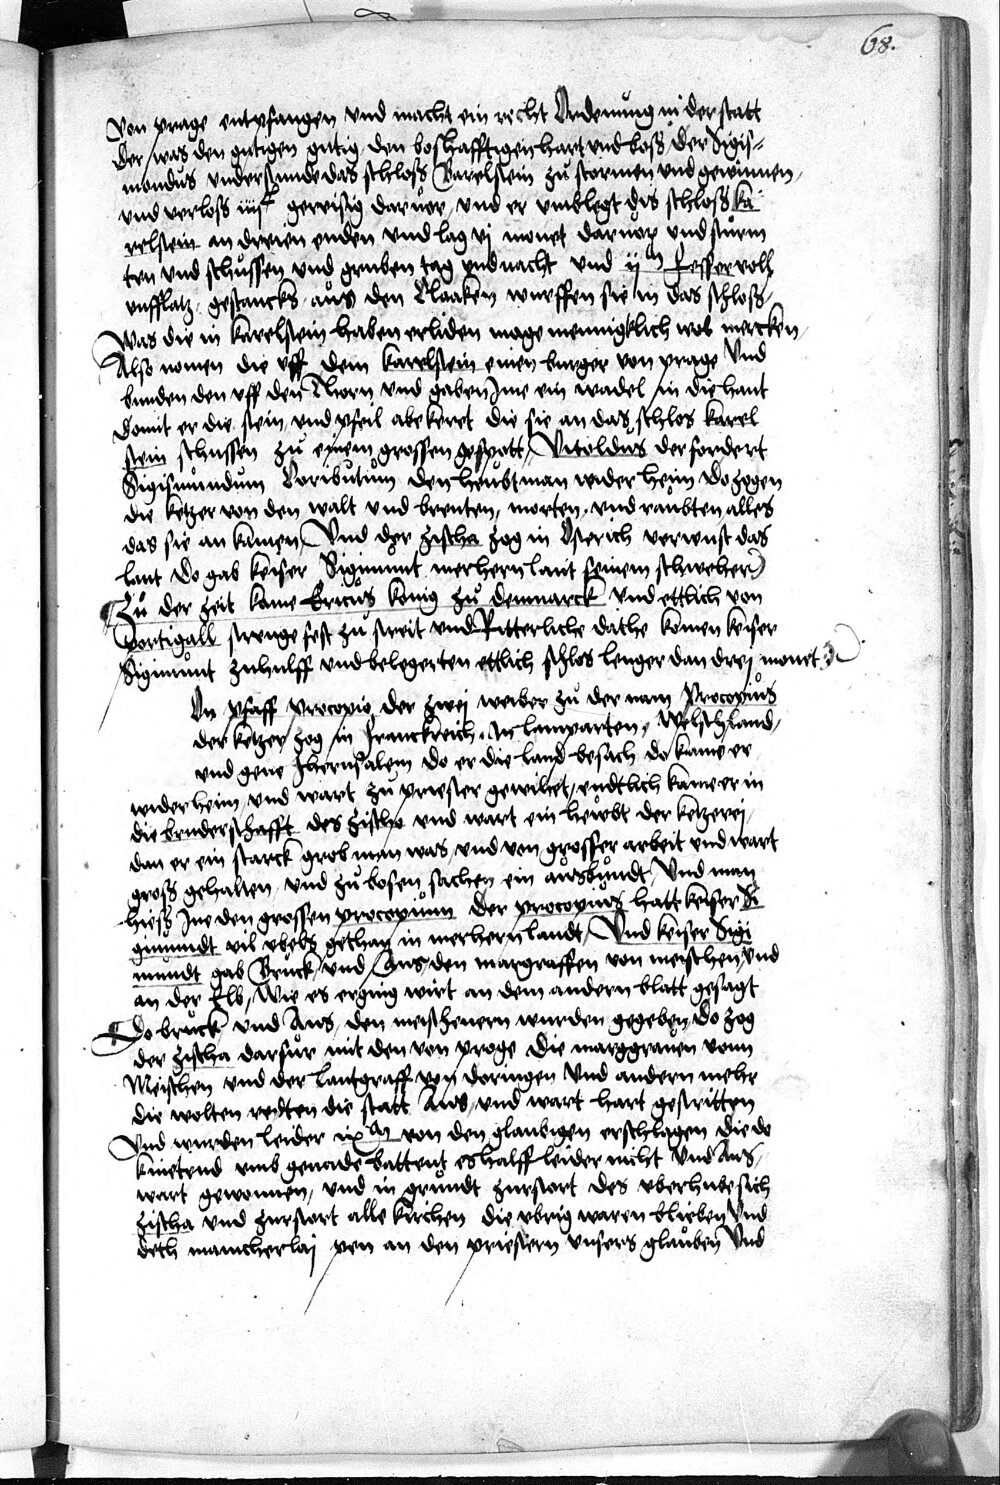 68.
von prage entpfangen vnd macht ein recht Ordenung in der statt
der was den gutigen gutig den boshafftigen hart vnd boß der Sigis-
mondus vnderstunde das schloß Carelstein zu stormen vnd gewinnen,
vnd verloß iiijc gereisig daruor, vnd er vmblegt das schloß ka
relstein an dreien enden vnd lag vj monet daruor vnd sturm
ten vnd schussen vnd gruben tag vnd nacht vnd ijm fesser voll
vnfflatz gestancks auß den Cloaken wurffen sie in das schloß,
Was die in karelstein haben erliden mage mennigklich wol mercken,
Also nomen die vff dem karelstein einen burger von prage Vnd
bunden den vff den Thorn vnd gaben Jme ein wadel in die hant
domit er die stein vnd pfeil abekeret die sie an das schlos karel
stein schussen zu einem grossen gespott, Vitoldus der fordert
Sigismundum Coributum den heubtman wider heim Do zogen
die ketzer von den walt vnd brenten, morten, vnd raubten alles
das sie an kamen, Vnd der zischa zog in Osterich verwust das
lant Do gab keiser Sigimunt merhern lant seinem schweher
Zu der zeit kame Ericus konig zu denmarck vnd ettlich von
portigall strenge fest zu streit vnd Ritterliche dathe komen keiser
Sigimunt zuhulff vnd belegerten ettlich schlos lenger dan drej monet
On pfaff procopio der zwej weiber zu der nam Procopius
der ketzer zog in Franckreich, In lamparten, Welschland,
vnd gene Jherusalem do er die land besach do kame er
wider heim, vnd wart zu priester gewihet, endtlich kame er in
die bruderschafft des zischa vnd wart ein heubt der ketzerei,
dan er ein starck grob man was, vnd von grosser arbeit vnd wart
groß gehalten, vnd zu bosen sachen ein außbundt, Vnd man
hieß Jne den grossen procopium der procopius hatt keiser Si
gimundt vil vbels gethan in merhern landt, Vnd keiser Sigi
mundt gab Bruck, vnd Aus, den margraffen von meischen, Vnd
an der Elb, Wie es erging wirt an dem andern blatt gesagt
Do bruck vnd Aus, den meischenern wurden gegeben, Do zog
der zischa darfur mit den von proge Die marggrauen vonn
Meischen vnd der lantgraff von doringen Vnd andern mehr
die wolten redten die statt Aus, vnd wart hart gestritten
Vnd wurden leider ixm von den glaubigen erschlagen die do
knietend vmb genade battent es halff leider nicht Vnd Aus,
wart gewonnen, vnd in grundt zurstort des vberhube sich
zischa vnd zurstort alle kirchen die vbrig waren blieben Vnd
deth mancherlaj pen an den priestern vnsers glauben Vnd